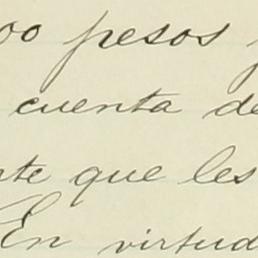 00 pesos
cuenta de
nte que les
En virtud